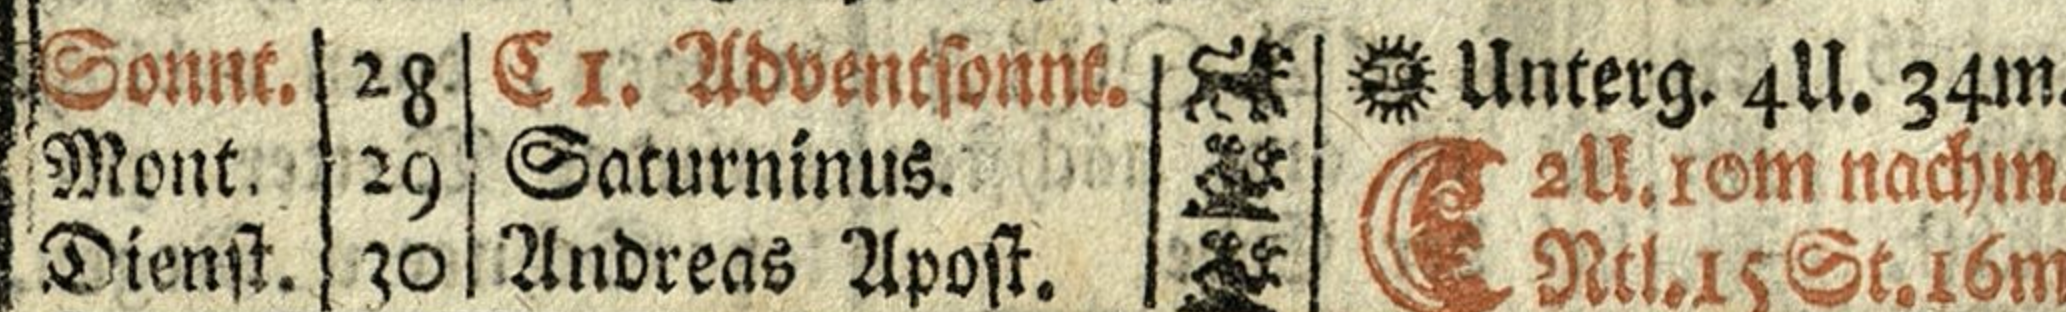 Sonnt. 28 C 1. Adventsonnt. Unterg. 4U. 34m.
Mont. 29 Saturninus. 2U. 10m nachm.
Dienst. 30 Andreas Apost. Ntl. 15 St. 16m